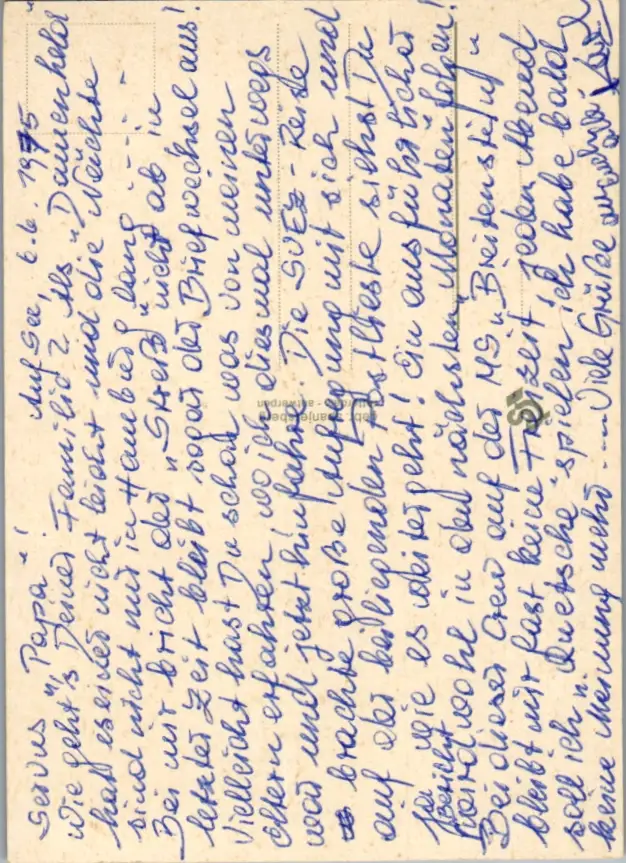 Auf See, 6.6. 1975
Servus "Papa"!
Wie geht's Deiner Familie? Als "Damenheld"
hat es einer nicht leicht und die Nächte
sind nicht nur in Hamburg lang ...
Bei mir bricht der "Streß" nicht ab - in
letzter Zeit bleibt sogar der Briefwechsel aus!
Vielleicht hast Du schon was von meinen
Eltern erfahren wo ich diesmal unterwegs
war und jetzt hinfahre. Die SUEZ-Reise
brachte große Aufregung mit sich und
auf der beiliegenden Postliste siehst Du
ja wie es weiter geht! Ein ausführlicher
Bericht wird wohl in den nächsten "Monaten" folgen!
Bei dieser Crew auf der MS "Breitenstein"
bleibt mir fast keine Freizeit, jeden Abend
soll ich "Quetsche" spielen, ich habe bald
keine Meinung mehr ... Viele Grüße
gebr. spanjersberg
rotterdam - antwerpen